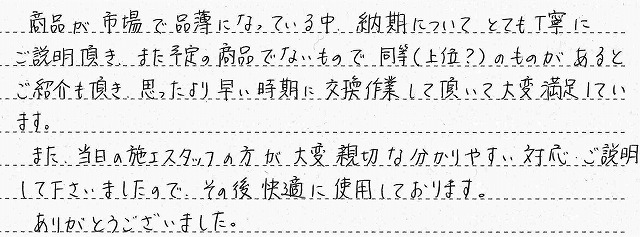 商品が市場で品薄になっている中、納期についてとても丁寧に
ご説明頂き、また予定の商品でないもので同等(上位?)のものがあると
ご紹介も頂き、思ったより早い時期に交換作業して頂いて大変満足してい
ます。
また、当日の施工スタッフの方が大変親切な分かりやすい対応、ご説明
して下さいましたので、その後快適に使用しております。
ありがとうございました。